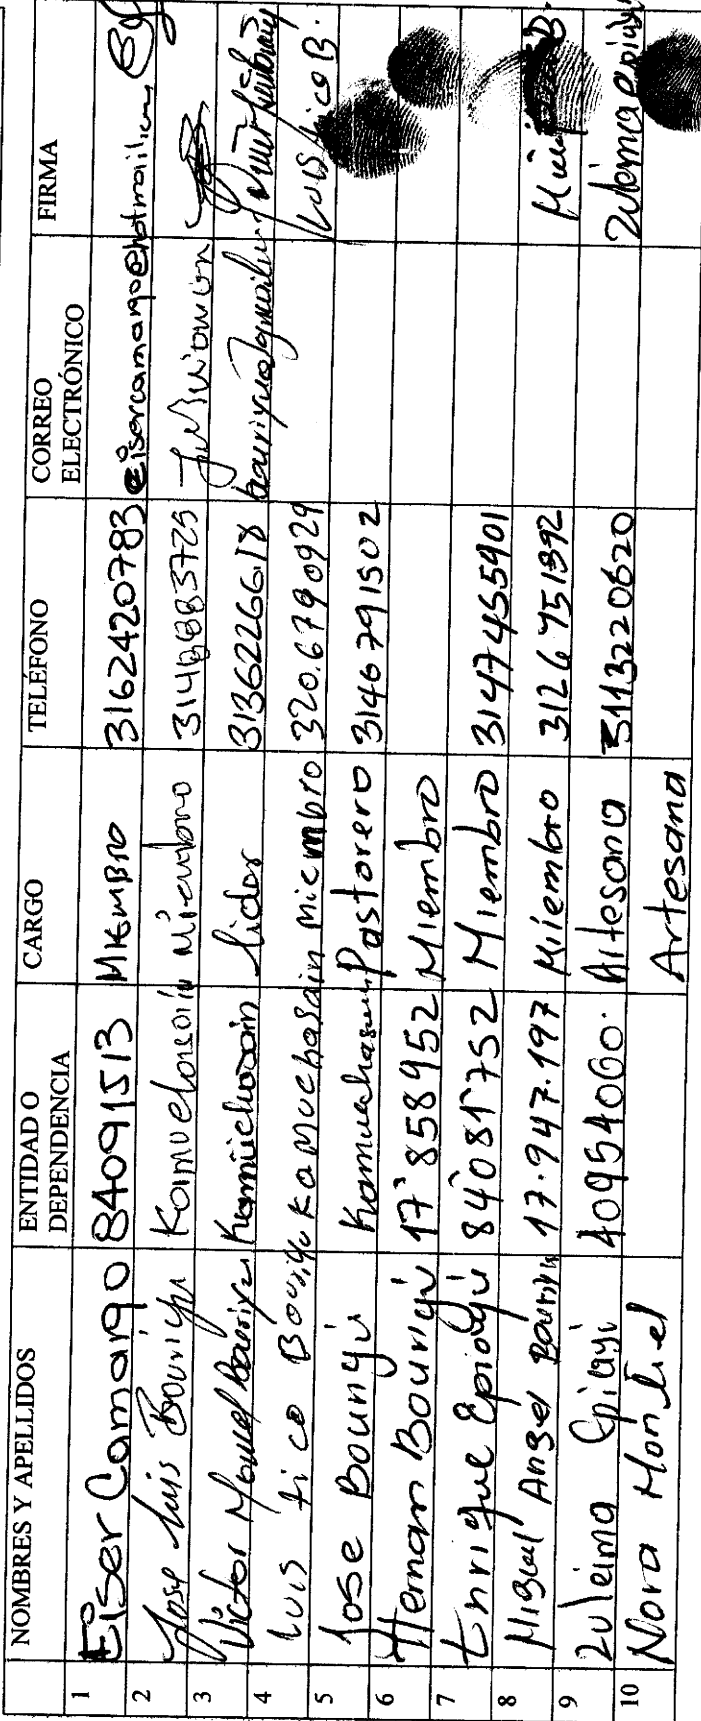 NOMBRES Y APELLIDOS ENTIDAD O DEPENDENCIA CARGO TELÉFONO CORREO ELECTRÓNICO FIRMA
1 Eiser Camargo 84091513 Miembro 3162420783 eisercamargo@hotmail.com
2 Jose Luis Bouriyu Kamuchasain Miembro
3 Victor Manuel Bouriyu Kamuchasain lider 3136226618
4 Luis Fico Bouriyu Kamuchasain miembro 320.6790929 Luis Fico B.
5 Jose Bouriyú Kamuchasain Pastorero 3146791502
6 Hernan Bouriyú 17'858952 Miembro
7 Enrique Epiayú 84'081752 Miembro 3147455901
8 Miguel Angel Bouriyu 17.947.197 Miembro 3126751392
9 Zuleima Epiayú 40954060. Artesana 3113220620 Zuleima epiayu
10 Nora Montiel Artesana